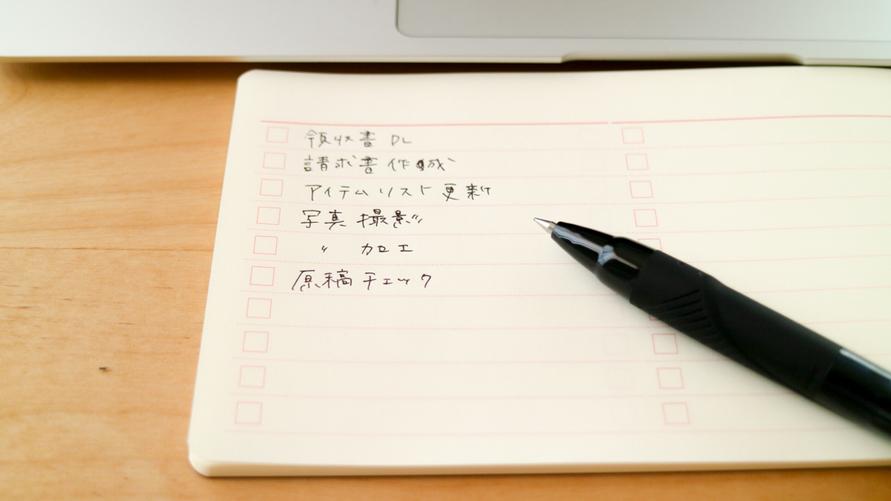 領収書 DL
請求書作成
アイテムリスト更新
写真撮影
〃 加工
原稿チェック